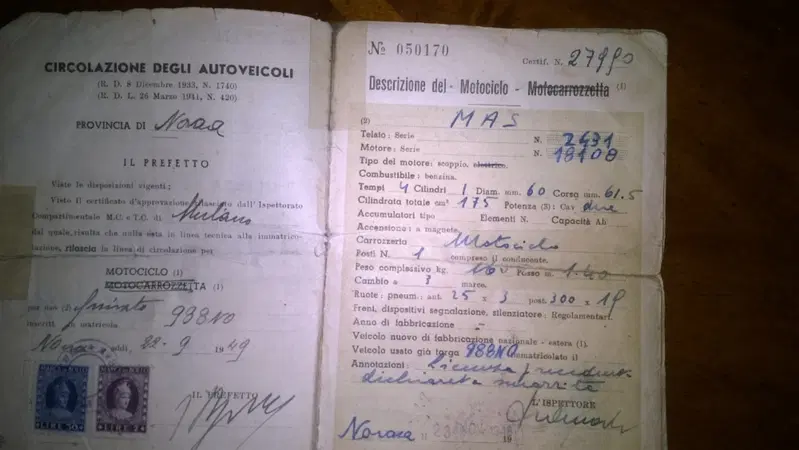 CIRCOLAZIONE DEGLI AUTOVEICOLI
(R. D. 8 Dicembre 1933, N. 1740)
(R. D. L. 26 Marzo 1941, N. 420)
PROVINCIA DI Novara
IL PREFETTO
Viste le disposizioni vigenti;
Visto il certificato d'approvazione rilasciato dall'Ispettorato
Compartimentale M.C. e T.C. di Milano
dal quale risulta che nulla osta in linea tecnica alla immatrico-
lazione, rilascia la linea di circolazione per
MOTOCICLO (1)
MOTOCARROZZETTA (1)
per uso (2) privato
inscritt in matricola 938NO
Novara addì 22-9 1949
IL PREFETTO
LIRE 50
LIRE 2
No 050170
Certif. N. 27990
Descrizione del - Motociclo - Motocarrozzetta (1)
(2) MAS
Telaio: Serie N. 2431
Motore: Serie N. 18108
Tipo del motore: scoppio, elettrico.
Combustibile: benzina.
Tempi 4 Cilindri 1 Diam. mm. 60 Corsa mm. 61.5
Cilindrata totale cm³ 175 Potenza (3): Cav due
Accumulatori tipo Elementi N. Capacità Ah
Accensione: a magnete.
Carrozzeria Motociclo
Posti N. 1 compreso il conducente.
Peso complessivo kg. 160 Passo m. 1.40
Cambio a 3 marce.
Ruote: pneum.: ant. 25 x 3 post. 300 x 19
Freni, dispositivi segnalazione, silenziatore: Regolamentari.
Anno di fabbricazione -
Veicolo nuovo di fabbricazione nazionale - estera (1).
Veicolo usato già targa 988NO immatricolato il
Annotazioni: Licenza precedente
dichiarata smarrita
L'ISPETTORE
Novara 19